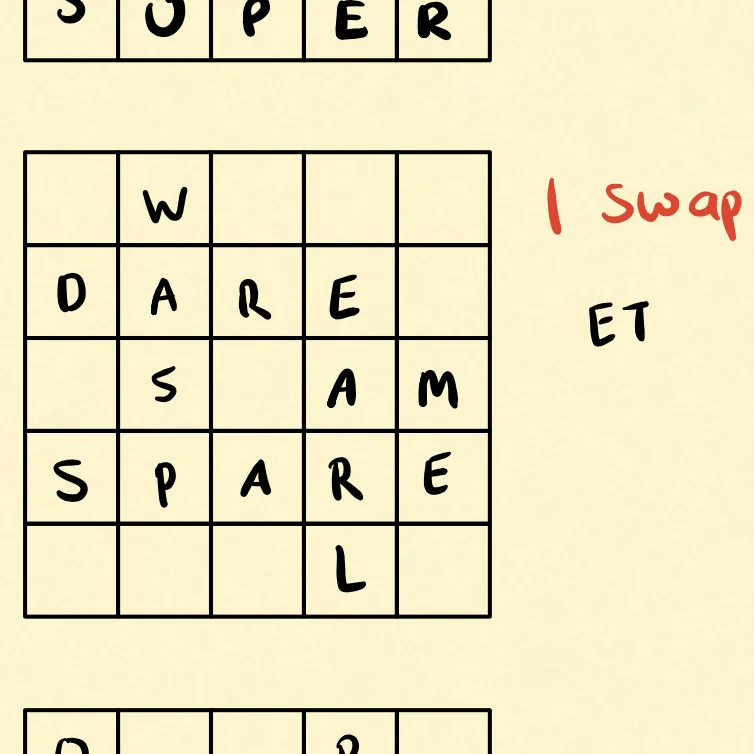 S U P E R
W
D A R E
S A M
S P A R E
L
1 swap
E T